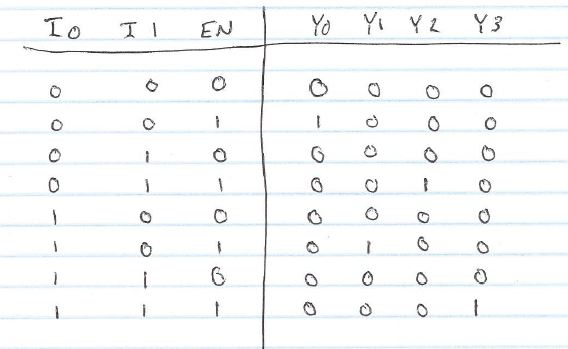 I0 I1 EN Y0 Y1 Y2 Y3
0 0 0 0 0 0 0
0 0 1 1 0 0 0
0 1 0 0 0 0 0
0 1 1 0 0 1 0
1 0 0 0 0 0 0
1 0 1 0 1 0 0
1 1 0 0 0 0 0
1 1 1 0 0 0 1